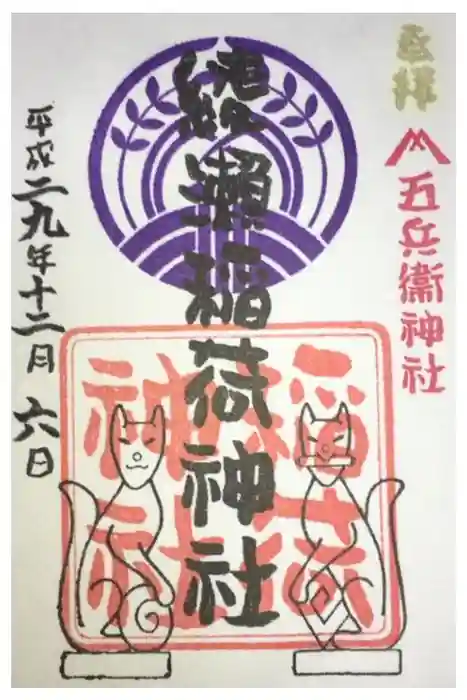 奉拝
五兵衛神社
綾瀬稲荷神社
稲荷神社
平成二九年十二月六日